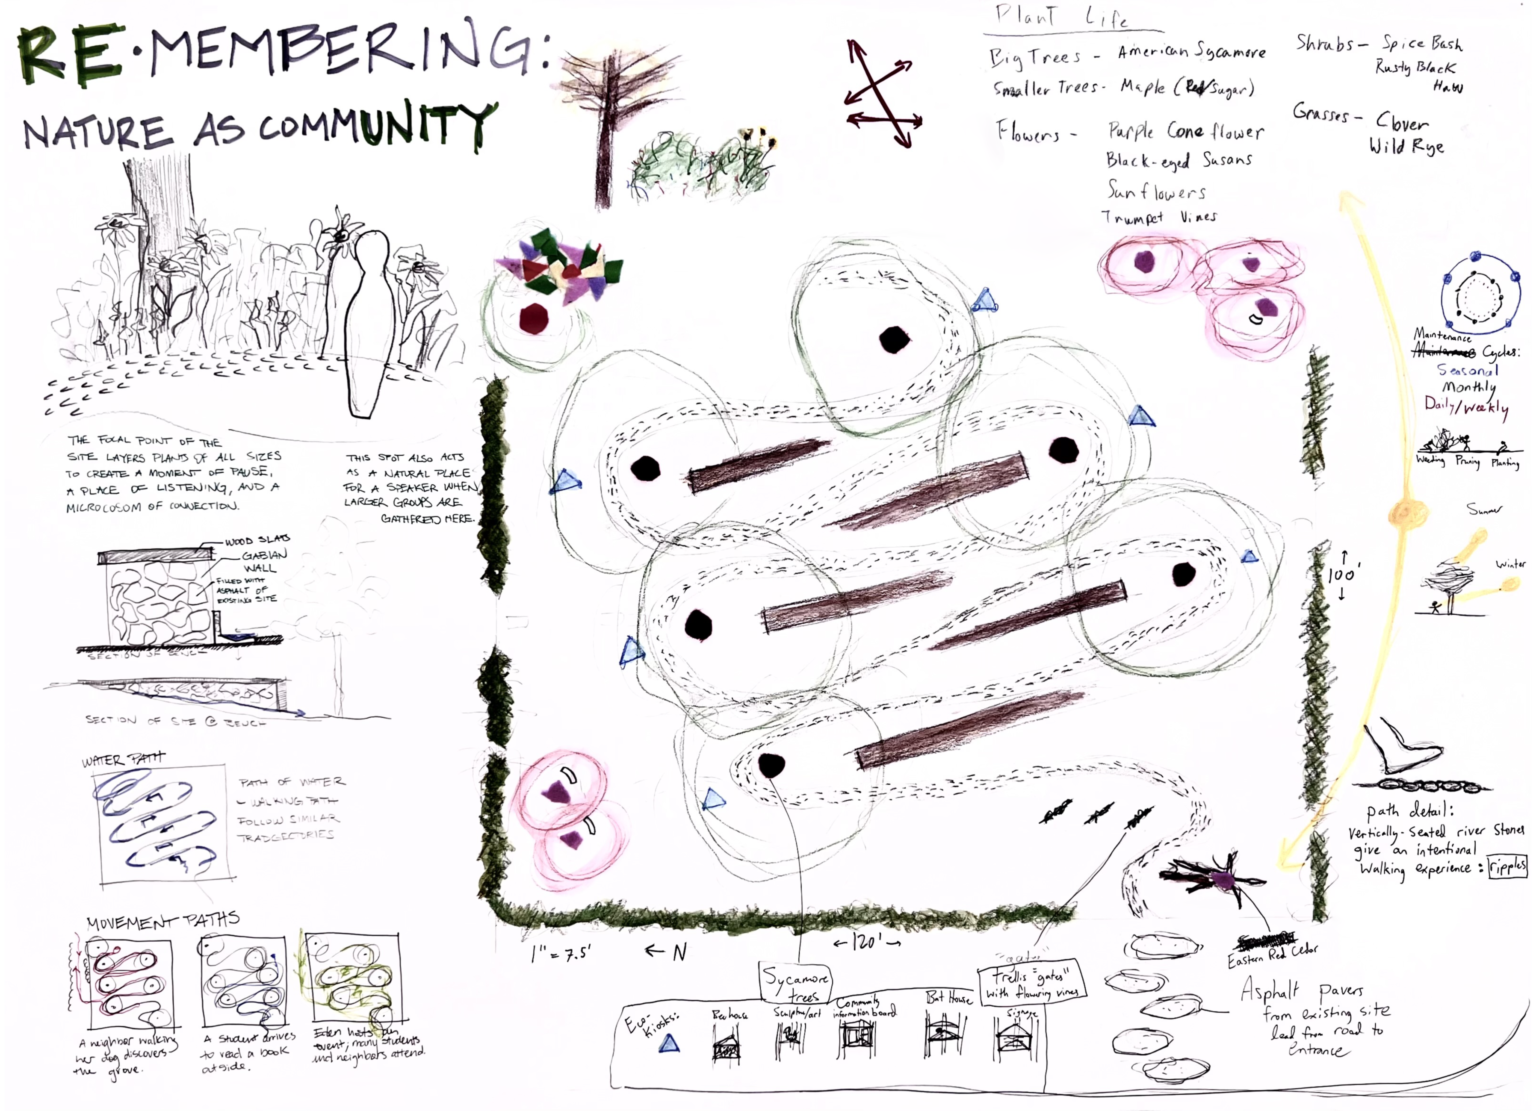 RE·MEMBERING:
NATURE AS COMMUNITY
Plant Life
Big Trees - American Sycamore
Smaller Trees - Maple (Red/Sugar)
Flowers - Purple Cone flower
Black-eyed Susans
Sunflowers
Trumpet Vines
Shrubs - Spice Bush
Rusty Black
Haw
Grasses - Clover
Wild Rye
THE FOCAL POINT OF THE
SITE LAYERS PLANTS OF ALL SIZES
TO CREATE A MOMENT OF PAUSE,
A PLACE OF LISTENING, AND A
MICROCOSOM OF CONNECTION.
THIS SPOT ALSO ACTS
AS A NATURAL PLACE
FOR A SPEAKER WHEN
LARGER GROUPS ARE
GATHERED HERE.
WOOD SLATS
GABIAN
WALL
FILLED WITH
ASPHALT OF
EXISTING SITE
SECTION OF BENCH
SECTION OF SITE @ BENCH
WATER PATH
PATH OF WATER
+ WALKING PATH
FOLLOW SIMILAR
TRADGECTORIES
MOVEMENT PATHS
A neighbor walking
her dog discovers
the grove.
A student arrives
to read a book
outside.
Eden hosts an
event; many students
and neighbors attend.
Maintenance
Cycles:
Seasonal
Monthly
Daily/Weekly
Weeding Pruning Planting
Summer
Winter
100'
path detail:
Vertically-Seated river Stones
give an intentional
Walking experience: ripples
1" = 7.5'
← N
←120'→
Sycamore
trees
Trellis "gates"
with flowering vines
Eco-
Kiosks:
Bee house
Sculpture/art
Community
information board
Bat House
Signage
Eastern Red Cedar
Asphalt pavers
from existing site
lead from road to
Entrance